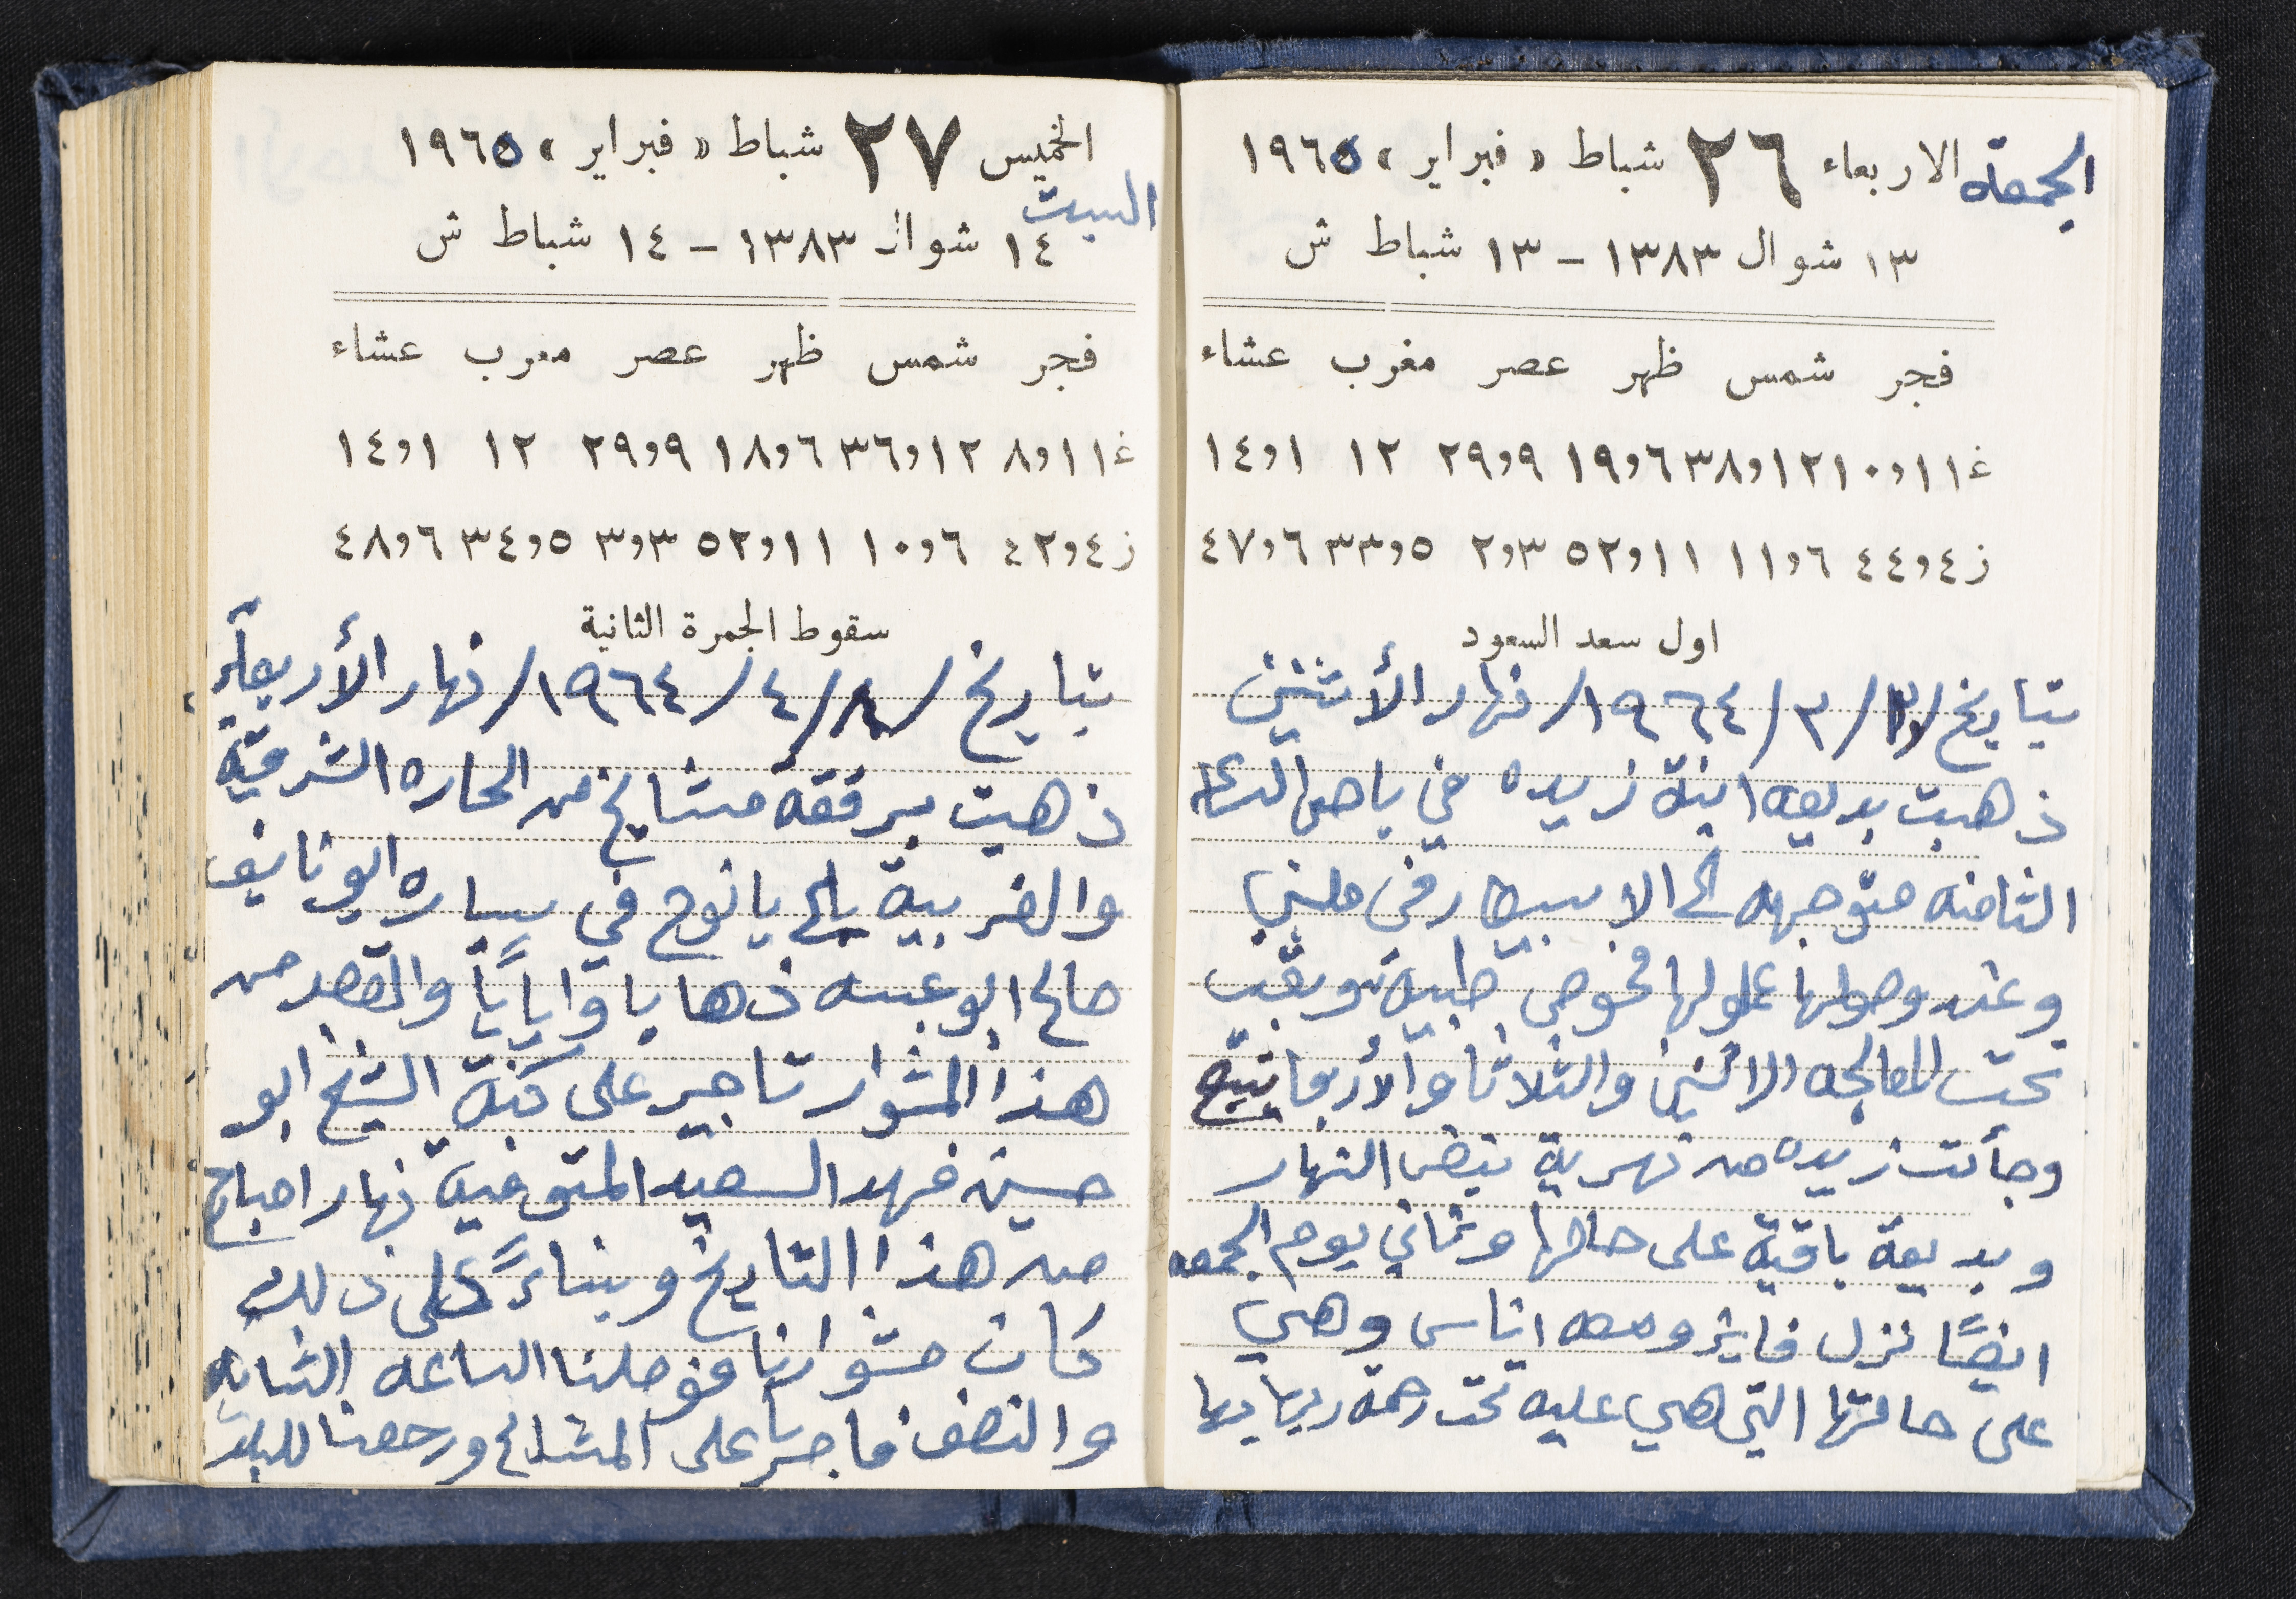 الجمعة الاربعاء ٢٦ شباط « فبراير » ١٩٦٥
١٣ شوال ١٣٨٣ - ١٣ شباط ش
فجر شمس ظهر عصر مغرب عشاء
غ ١١و١٠ ١٢و٣٨ ٦و١٩ ٩و٢٩ ١٢ ١و١٤
ز ٤و٤٤ ٦و١١ ١١و٥٢ ٣و٢ ٥و٣٣ ٦و٤٧
اول سعد السعود
بتاريخ /٢/ ٣/ ١٩٦٤/ نهار الأثنين
ذهبت بديعه ابنة زيده في باص
الثامنه متوجهه الى الاسبيطار
وعند وصولها عملولها فحوص طبية وبقيت
تحت المعالجه الاثنين والثلاثا والأربعا
وجأت زيده من نهرية بنفس النهار
وبديعة باقية على حالها وثاني يوم الجمعه
ايضًا نزل فايز ومعه اناس وهي
على حالتها التي هي عليه تحت رحمة ربها
الخميس ٢٧ شباط « فبراير » ١٩٦٥
السبت
١٤ شوال ١٣٨٣ - ١٤ شباط ش
فجر شمس ظهر عصر مغرب عشاء
غ ١١و٨ ١٢و٣٦ ٦و١٨ ٩و٢٩ ١٢ ١و١٤
ز ٤و٤٢ ٦و١٠ ١١و٥٢ ٣و٣ ٥و٣٤ ٦و٤٨
سقوط الجمرة الثانية
بتاريخ /٨/ ٤/ ١٩٦٤/ نهار الأربعاء
ذهبت برفقة مشايخ من الحاره الشرقية
والغربية الى يانوح في سياره ابو نايف
صالح ابو عبسه ذهابا وايابًا والقصد من
هذا المشوار تاجير على كنة الشيخ ابو
حسين فهد السعيد المتوفية نهار صباح
من هذا التاريخ وبناءً على ذلك
كان مشوارنا فوصلنا الساعه الثانيه
والنصف فاجرنا على المشالح ورجعنا للبلد